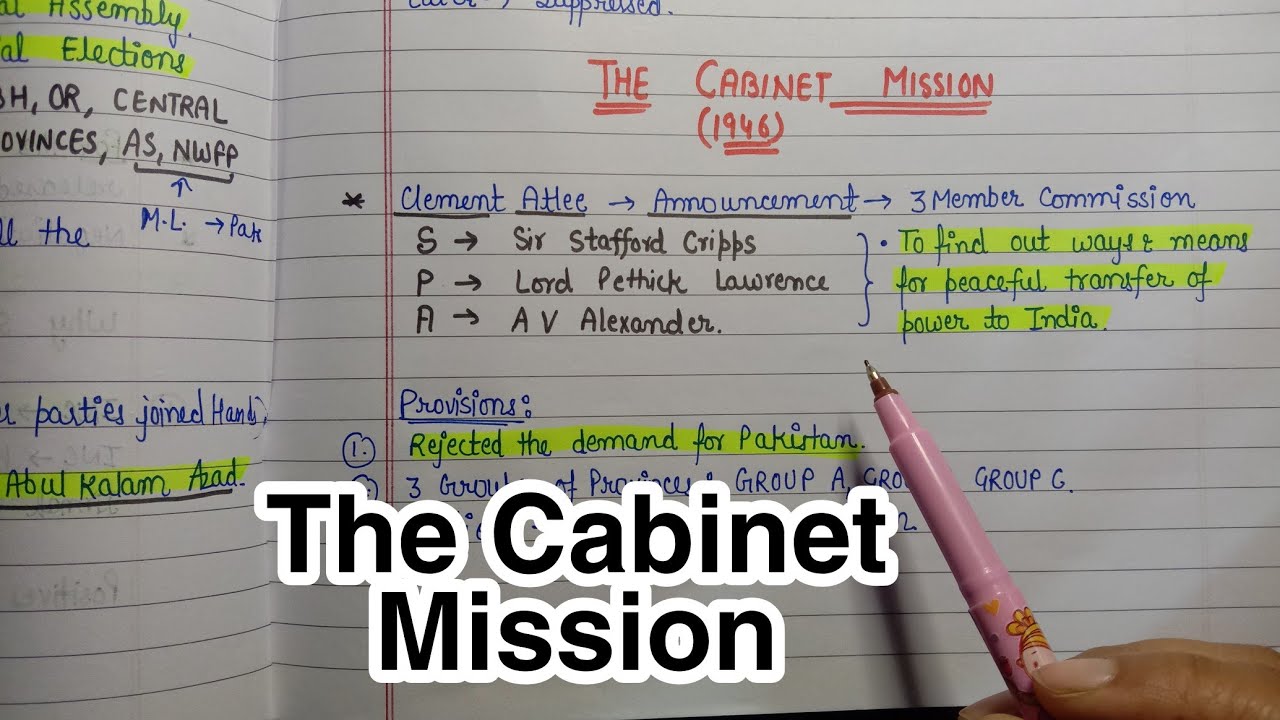 al Assembly.
al Elections
BH, OR, CENTRAL
OVINCES, AS, NWFP
↑
M.L. →Pak
ll the
parties joined Hands
Abul Kalam Azad.
Suppressed.
THE CABINET MISSION
(1946)
* Clement Atlee → Announcement → 3 Member Commission
S → Sir Stafford Cripps
P → Lord Pethick Lawrence
A → A V Alexander.
• To find out ways & means
for peaceful transfer of
power to India.
Provisions:
1. Rejected the demand for Pakistan.
3 Groups of Provinces: GROUP A, GROUP C.
The Cabinet
Mission